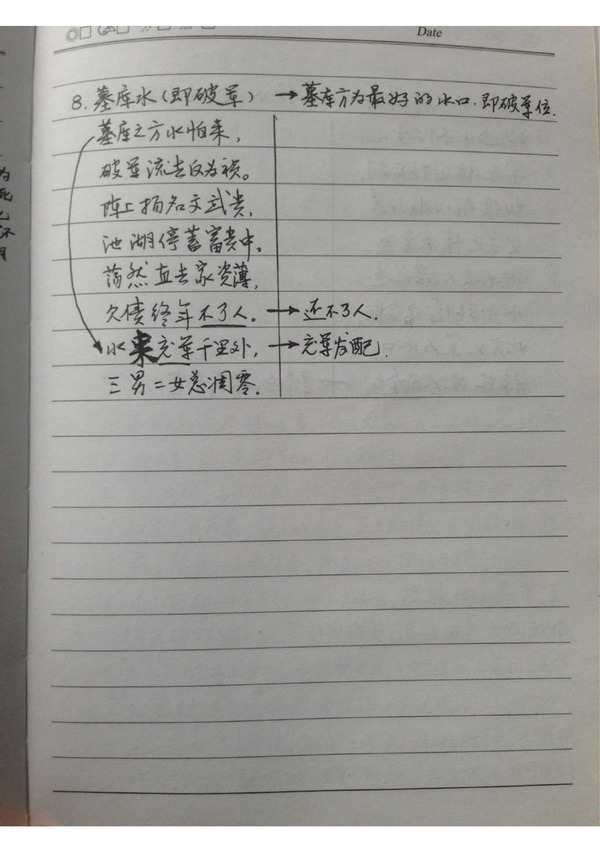 Date
8. 墓库水（即破军）→墓库方为最好的水口，即破军位.
墓库之方水怕来，
破军流去反为祯。
阵上扬名文武贵，
池湖停蓄富贵中。
荡然直去家资薄，
欠债终年不了人。→还不了人.
水来充军千里外，→充军发配.
三男二女总凋零.